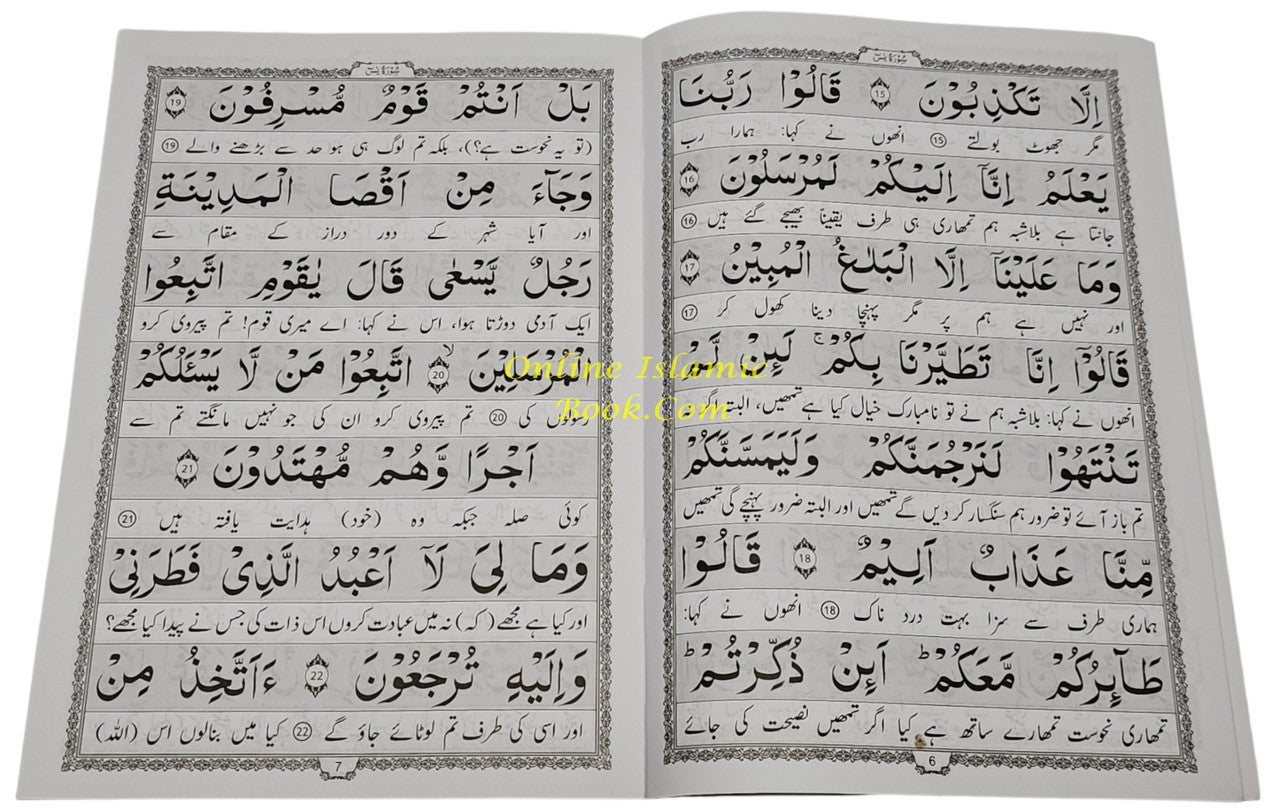 سُوْرَةُ يٰسٓ
اِلَّا تَكْذِبُوْنَ 15 قَالُوْا رَبُّنَا
مگر جھوٹ بولتے 15 انھوں نے کہا: ہمارا رب
يَعْلَمُ اِنَّاۤ اِلَيْكُمْ لَمُرْسَلُوْنَ 16
جانتا ہے بلاشبہ ہم تمھاری ہی طرف یقیناً بھیجے گئے ہیں 16
وَمَا عَلَيْنَاۤ اِلَّا الْبَلٰغُ الْمُبِيْنُ 17
اور نہیں ہے ہم پر مگر پہنچا دینا کھول کر 17
قَالُوْۤا اِنَّا تَطَيَّرْنَا بِكُمْ ۚ لَئِنْ لَّمْ
انھوں نے کہا: بلاشبہ ہم نے تو نامبارک خیال کیا ہے تمھیں، البتہ اگر نہ
تَنْتَهُوْا لَنَرْجُمَنَّكُمْ وَلَيَمَسَّنَّكُمْ
تم باز آئے تو ضرور ہم سنگسار کر دیں گے تمھیں اور البتہ ضرور پہنچے گی تمھیں
مِّنَّا عَذَابٌ اَلِيْمٌ 18 قَالُوْا
ہماری طرف سے سزا بہت درد ناک 18 انھوں نے کہا:
طَآئِرُكُمْ مَّعَكُمْ ؕ اَئِنْ ذُكِّرْتُمْ ؕ
تمھاری نحوست تمھارے ساتھ ہے، کیا اگر تمھیں نصیحت کی جائے
6
سُوْرَةُ يٰسٓ
بَلْ اَنْتُمْ قَوْمٌ مُّسْرِفُوْنَ 19
(تو یہ نحوست ہے؟)، بلکہ تم لوگ ہی ہو حد سے بڑھنے والے 19
وَجَآءَ مِنْ اَقْصَا الْمَدِيْنَةِ
اور آیا شہر کے دور دراز کے مقام سے
رَجُلٌ يَّسْعٰى قَالَ يٰقَوْمِ اتَّبِعُوا
ایک آدمی دوڑتا ہوا، اس نے کہا: اے میری قوم! تم پیروی کرو
الْمُرْسَلِيْنَ ۙ 20 اتَّبِعُوْا مَنْ لَّا يَسْـَٔلُكُمْ
رسولوں کی 20 تم پیروی کرو ان کی جو نہیں مانگتے تم سے
اَجْرًا وَّهُمْ مُّهْتَدُوْنَ 21
کوئی صلہ جبکہ وہ (خود) ہدایت یافتہ ہیں 21
وَمَا لِيَ لَاۤ اَعْبُدُ الَّذِيْ فَطَرَنِيْ
اور کیا ہے مجھے (کہ) نہ میں عبادت کروں اس ذات کی جس نے پیدا کیا مجھے؟
وَاِلَيْهِ تُرْجَعُوْنَ 22 ءَاَتَّخِذُ مِنْ
اور اسی کی طرف تم لوٹائے جاؤ گے 22 کیا میں بنالوں اس (اللہ)
7
Online Islamic
Book.Com